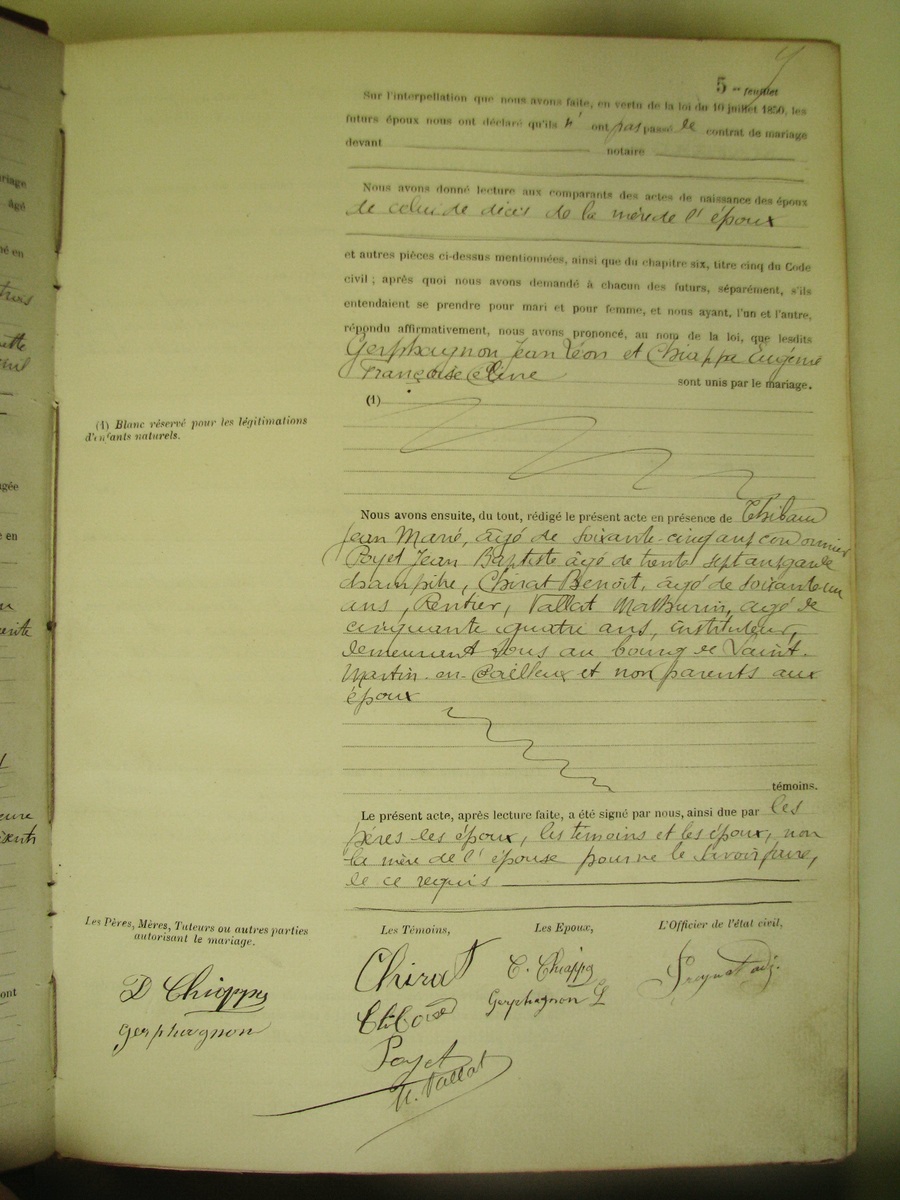 5me feuillet
Sur l'interpellation que nous avons faite, en vertu de la loi du 10 juillet 1850, les
futurs époux nous ont déclaré qu'ils n' ont pas passé de contrat de mariage
devant notaire
Nous avons donné lecture aux comparants des actes de naissance des époux
de celui de décès de la mère de l'époux
et autres pièces ci-dessus mentionnées, ainsi que du chapitre six, titre cinq du Code
civil ; après quoi nous avons demandé à chacun des futurs, séparément, s'ils
entendaient se prendre pour mari et pour femme, et nous ayant, l'un et l'autre,
répondu affirmativement, nous avons prononcé, au nom de la loi, que lesdits
Gerphagnon Jean Léon et Chiappe Eugénie
Françoise Céline sont unis par le mariage.
(1)
(1) Blanc réservé pour les légitimations
d'enfants naturels.
Nous avons ensuite, du tout, rédigé le présent acte en présence de Thibaud
Jean Marie, âgé de soixante-cinq ans cordonnier
Poyet Jean Baptiste âgé de trente sept ans garde
champêtre, Chirat Benoit, âgé de soixante un
ans, Rentier, Vallat Mathurin, âgé de
cinquante quatre ans, instituteur,
demeurant tous au bourg de Saint-
Martin-en-Coailleux et non parents aux
époux
témoins.
Le présent acte, après lecture faite, a été signé par nous, ainsi due par les
pères les époux, les témoins et les époux, non
la mère de l'épouse pour ne le savoir faire,
de ce requis
Les Pères, Mères, Tuteurs ou autres parties
autorisant le mariage.
Les Témoins,
Les Epoux,
L'Officier de l'état civil,
D Chiappe
Gerphagnon
Chirat
Thibaud
Poyet
M. Vallat
C. Chiappe
Gerphagnon L